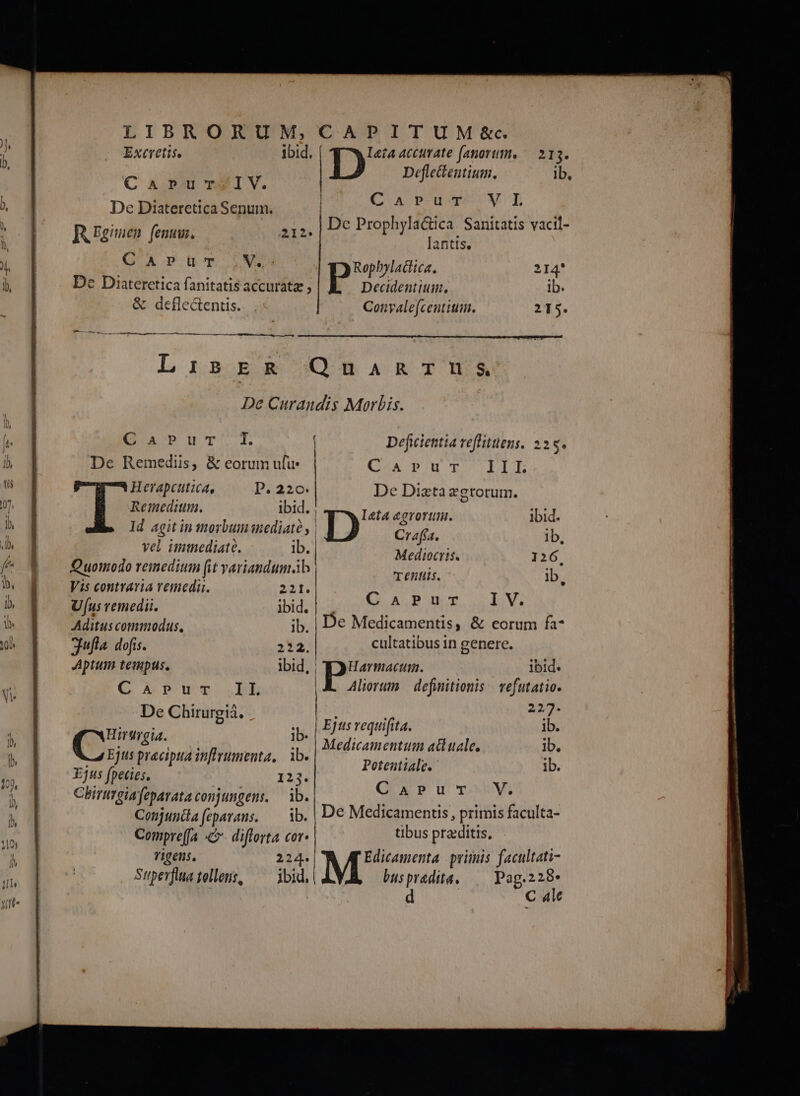 LIBRORUM, CAPITUM &c.
Excretis. ibid.
CAPUT IV.
De Diateretica Senum.
REgimen ſenum. 212.
CAPUT V.
De Diateretica ſanitatis accuratæ,
& deflectentis.
DIæta accurate ſanorum. 213.
Deflectentium. ib.
CAPUT VI.
De Prophylactica Sanitatis vacil-
lantis.
PRophylactica. 214.
Decidentium. ib.
Convaleſcentium. 215.
LIBER QUARTUS.
De Curandis Morbis.
CAPUT I.
De Remediis, & eorum uſu.
THerapeutica, P. 220.
Remedium. ibid.
Id agit in morbum mediatè,
vel immediatè. ib.
Quomodo remedium ſit variandum. ib
Vis contraria remedii. 221.
Uſus remedii. ibid.
Aditus commodus. ib.
Juſta doſis. 222.
Aptum tempus. ibid.
CAPUT II.
De Chirurgiâ.
CHirurgia. ib.
Ejus præcipua inſtrumenta. ib.
Ejus ſpecies. 123.
Chirurgia ſeparata conjungens. ib.
Conjuncta ſeparans. ib.
Compreſſa & diſtorta cor-
rigens. 224.
Superflua tollens, ibid.
Deficientia reſtituens. 225.
CAPUT III.
De Diæta ægrorum.
DIæta ægrorum. ibid.
Craſſa. ib.
Mediocris. 126.
Tenuis. ib.
CAPUT IV.
De Medicamentis, & eorum fa-
cultatibus in genere.
PHarmacum. ibid.
Aliorum definitionis refutatio.
227.
Ejus requiſita. ib.
Medicamentum actuale. ib.
Potentiale. ib.
CAPUT V.
De Medicamentis, primis faculta-
tibus præditis.
MEdicamenta primis facultati-
bus prædita. Pag. 228.
d Cale